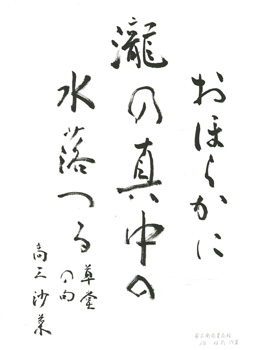 おほらかに
瀧の真中の
水落つる
草堂
の句
高三沙菜